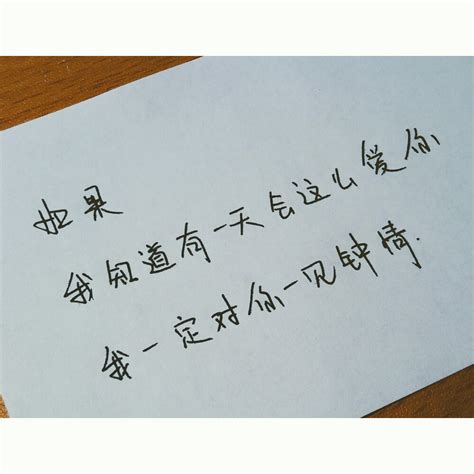 如果
我知道有一天会这么爱你
我一定对你一见钟情.